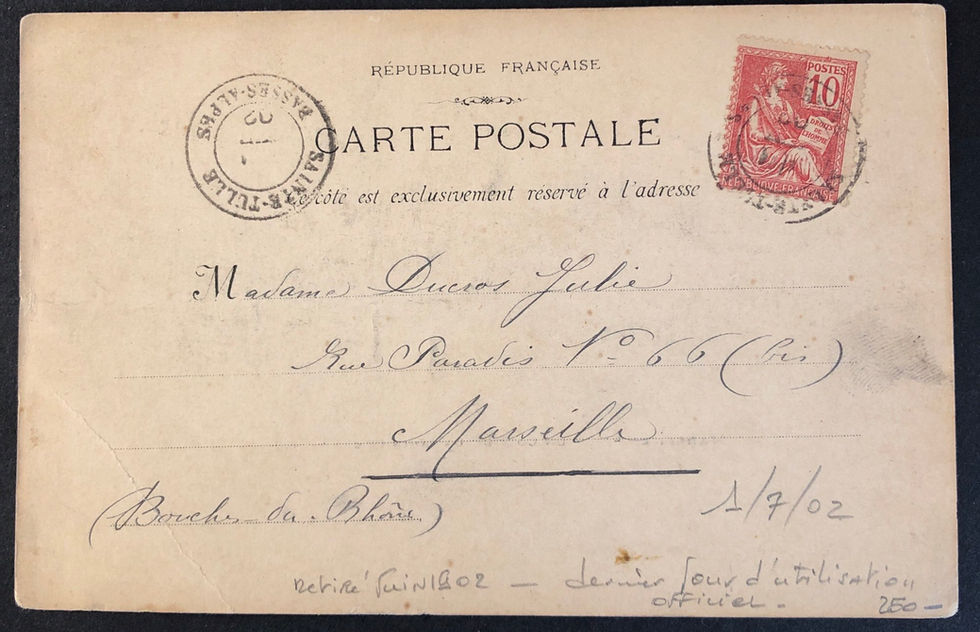 RÉPUBLIQUE FRANÇAISE
CARTE POSTALE
Ce côté est exclusivement réservé à l'adresse
SAINTE-TULLE
BASSES-ALPES
POSTES
10
DROITS
DE
L'HOMME
RÉPUBLIQUE FRANÇAISE
Madame Ducros Julie
Rue Paradis No 66 (bis)
Marseille
(Bouches-du-Rhône)
1/7/02
retiré Juin 1902 — dernier jour d'utilisation
officiel.
250 —